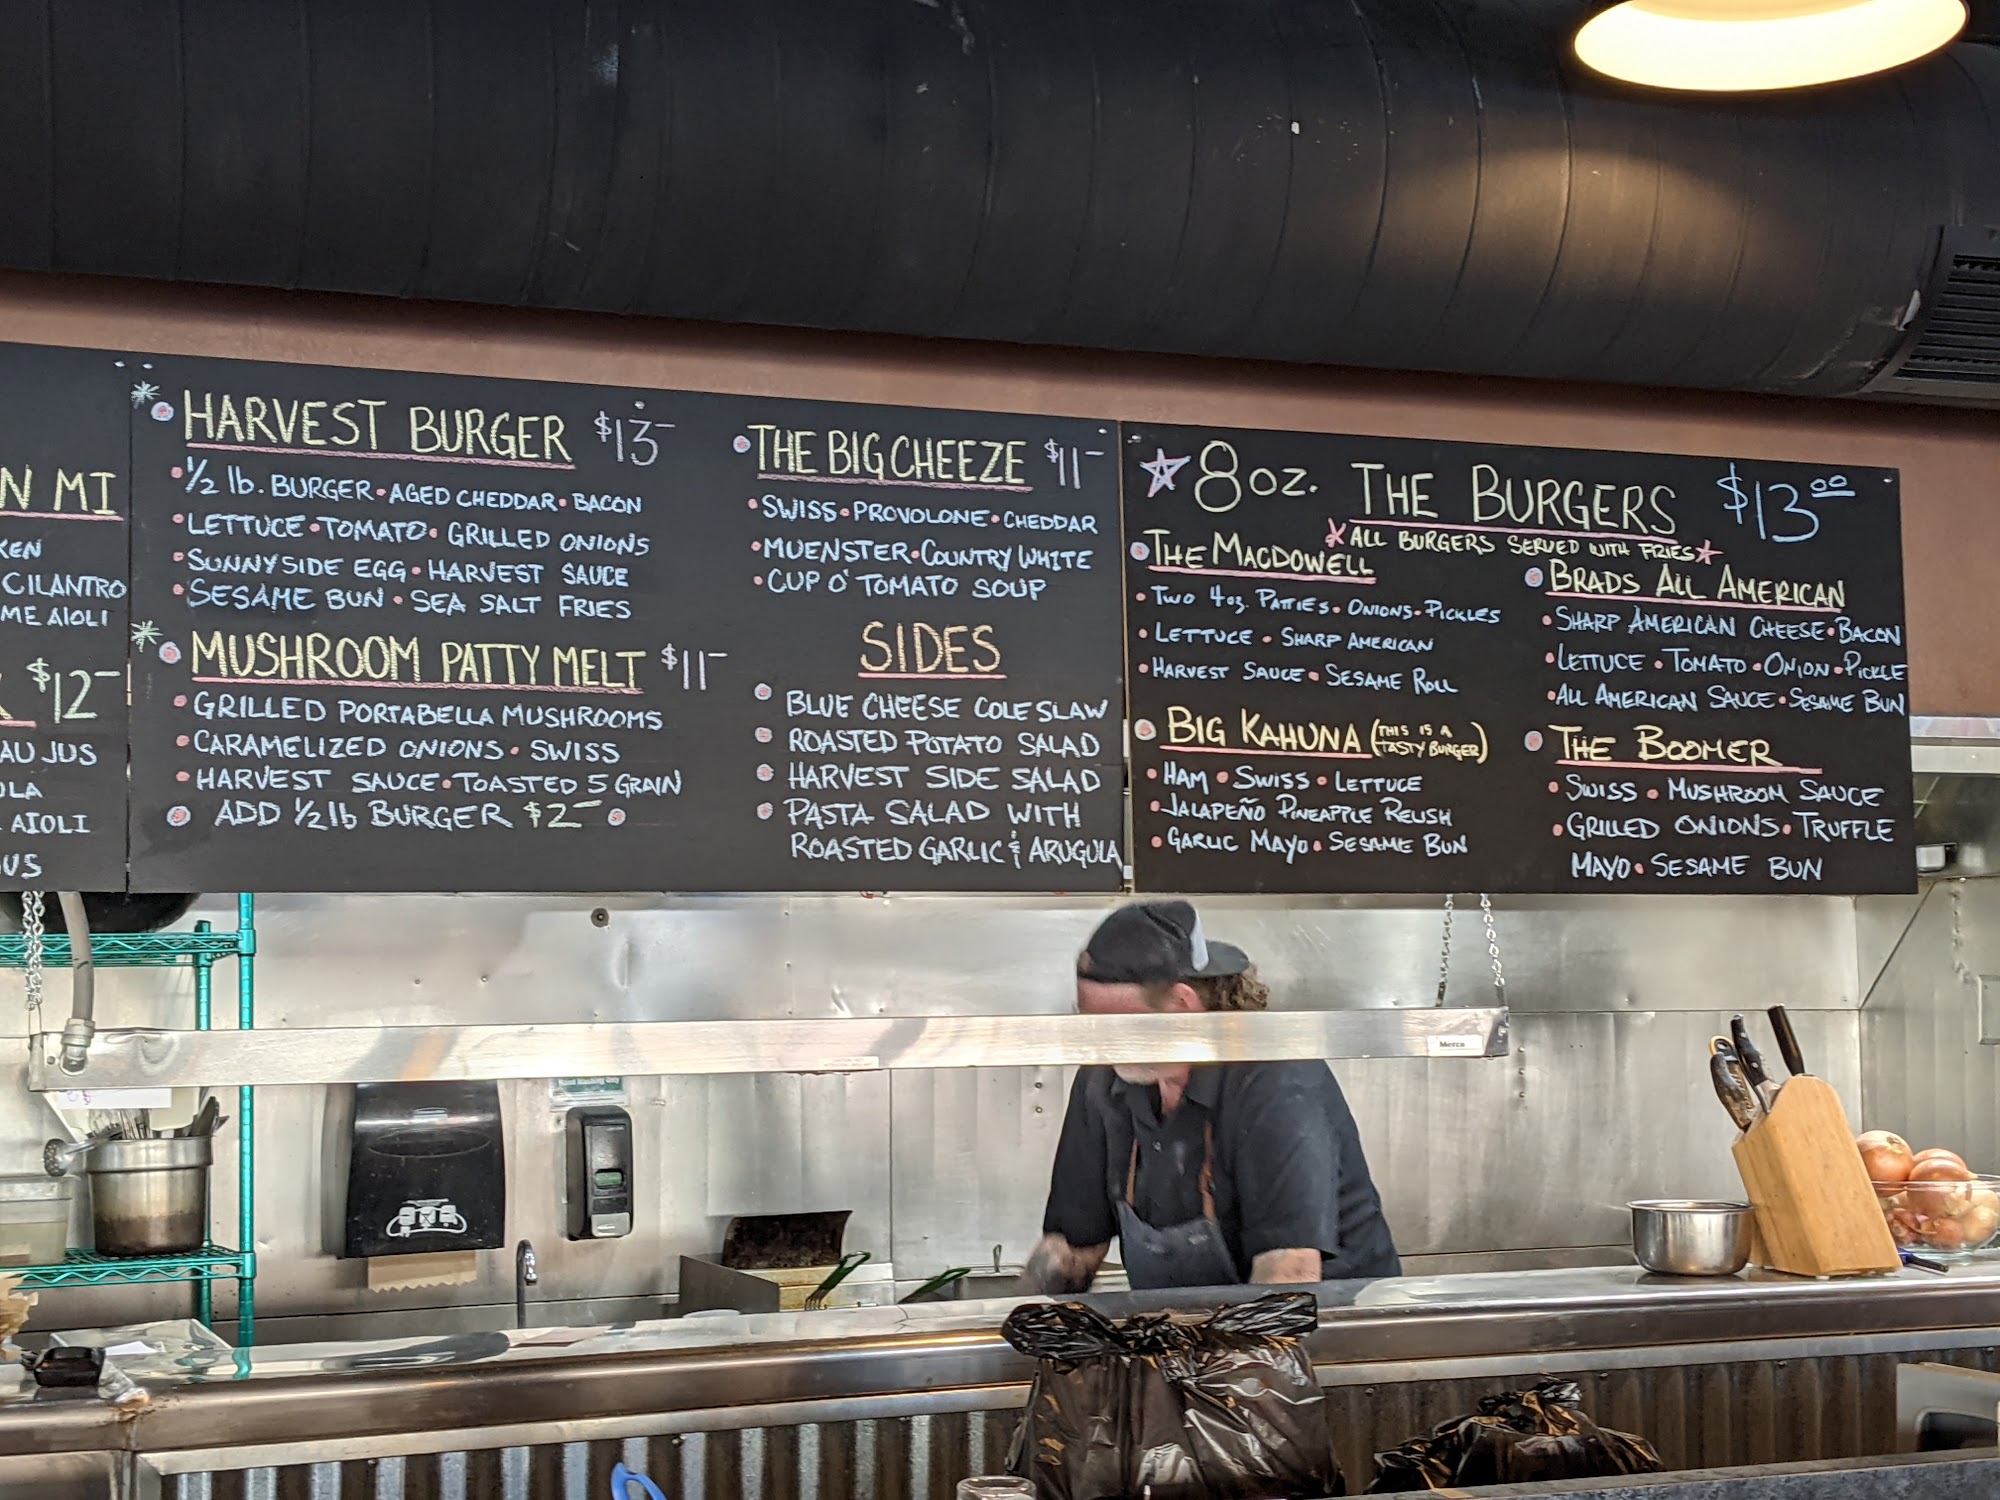 N MI
KEN
CILANTRO
ME AIOLI
$12-
AU JUS
AIOLI
HARVEST BURGER $13-
1/2 lb. BURGER • AGED CHEDDAR • BACON
LETTUCE • TOMATO • GRILLED ONIONS
SUNNYSIDE EGG • HARVEST SAUCE
SESAME BUN • SEA SALT FRIES
MUSHROOM PATTY MELT $11-
GRILLED PORTABELLA MUSHROOMS
CARAMELIZED ONIONS • SWISS
HARVEST SAUCE • TOASTED 5 GRAIN
ADD 1/2 lb BURGER $2-
THE BIG CHEEZE $11-
SWISS • PROVOLONE • CHEDDAR
MUENSTER • COUNTRY WHITE
CUP O' TOMATO SOUP
SIDES
BLUE CHEESE COLESLAW
ROASTED POTATO SALAD
HARVEST SIDE SALAD
PASTA SALAD WITH
ROASTED GARLIC & ARUGULA
8 oz. THE BURGERS $13.00
ALL BURGERS SERVED WITH FRIES
THE MACDOWELL
TWO 4oz. PATTIES • ONIONS • PICKLES
LETTUCE • SHARP AMERICAN
HARVEST SAUCE • SESAME ROLL
BIG KAHUNA (THIS IS A TASTY BURGER)
HAM • SWISS • LETTUCE
JALAPEÑO PINEAPPLE RELISH
GARLIC MAYO • SESAME BUN
BRADS ALL AMERICAN
SHARP AMERICAN CHEESE • BACON
LETTUCE • TOMATO • ONION • PICKLE
ALL AMERICAN SAUCE • SESAME BUN
THE BOOMER
SWISS • MUSHROOM SAUCE
GRILLED ONIONS • TRUFFLE
MAYO • SESAME BUN
Merco